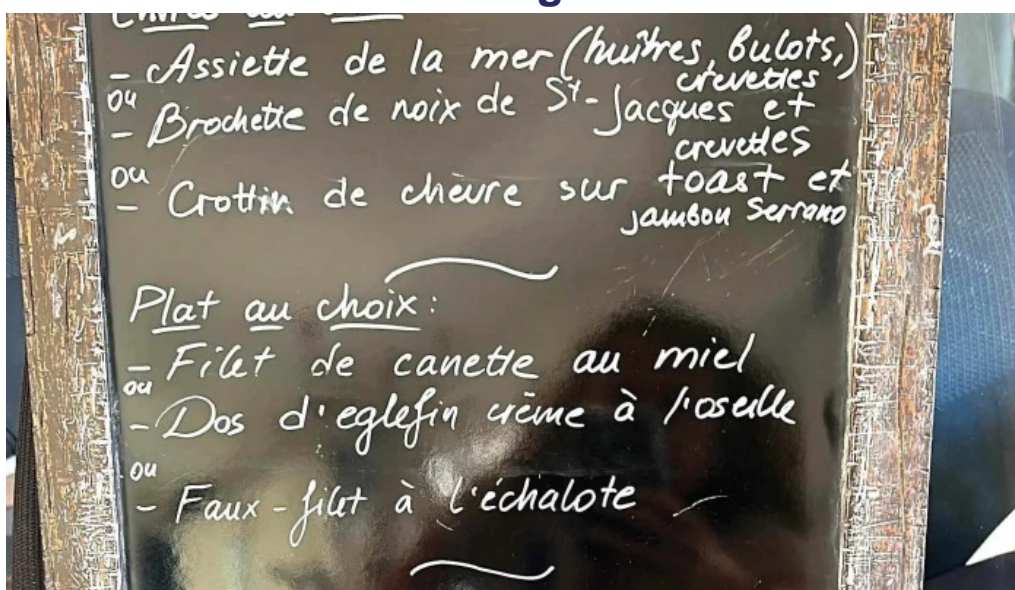 - Assiette de la mer (huîtres, bulots,)
crevettes
ou
- Brochette de noix de St-Jacques et
crevettes
ou
- Crottin de chèvre sur toast et
jambon Serrano
Plat au choix:
- Filet de canette au miel
ou
- Dos d'eglefin crème à l'oseille
ou
- Faux-filet à l'échalote